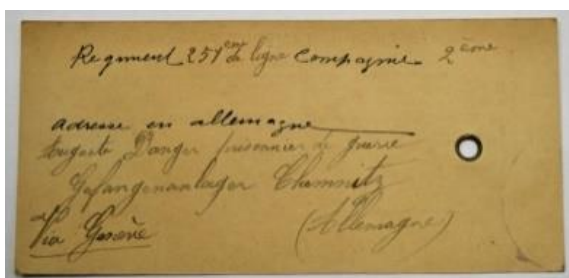 Regiment 251eme de ligne Compagnie 2ème
Adresse en allemagne
Auguste Danger prisonnier de guerre
Gefangenenlager Chemnitz
Via Genève (Allemagne)